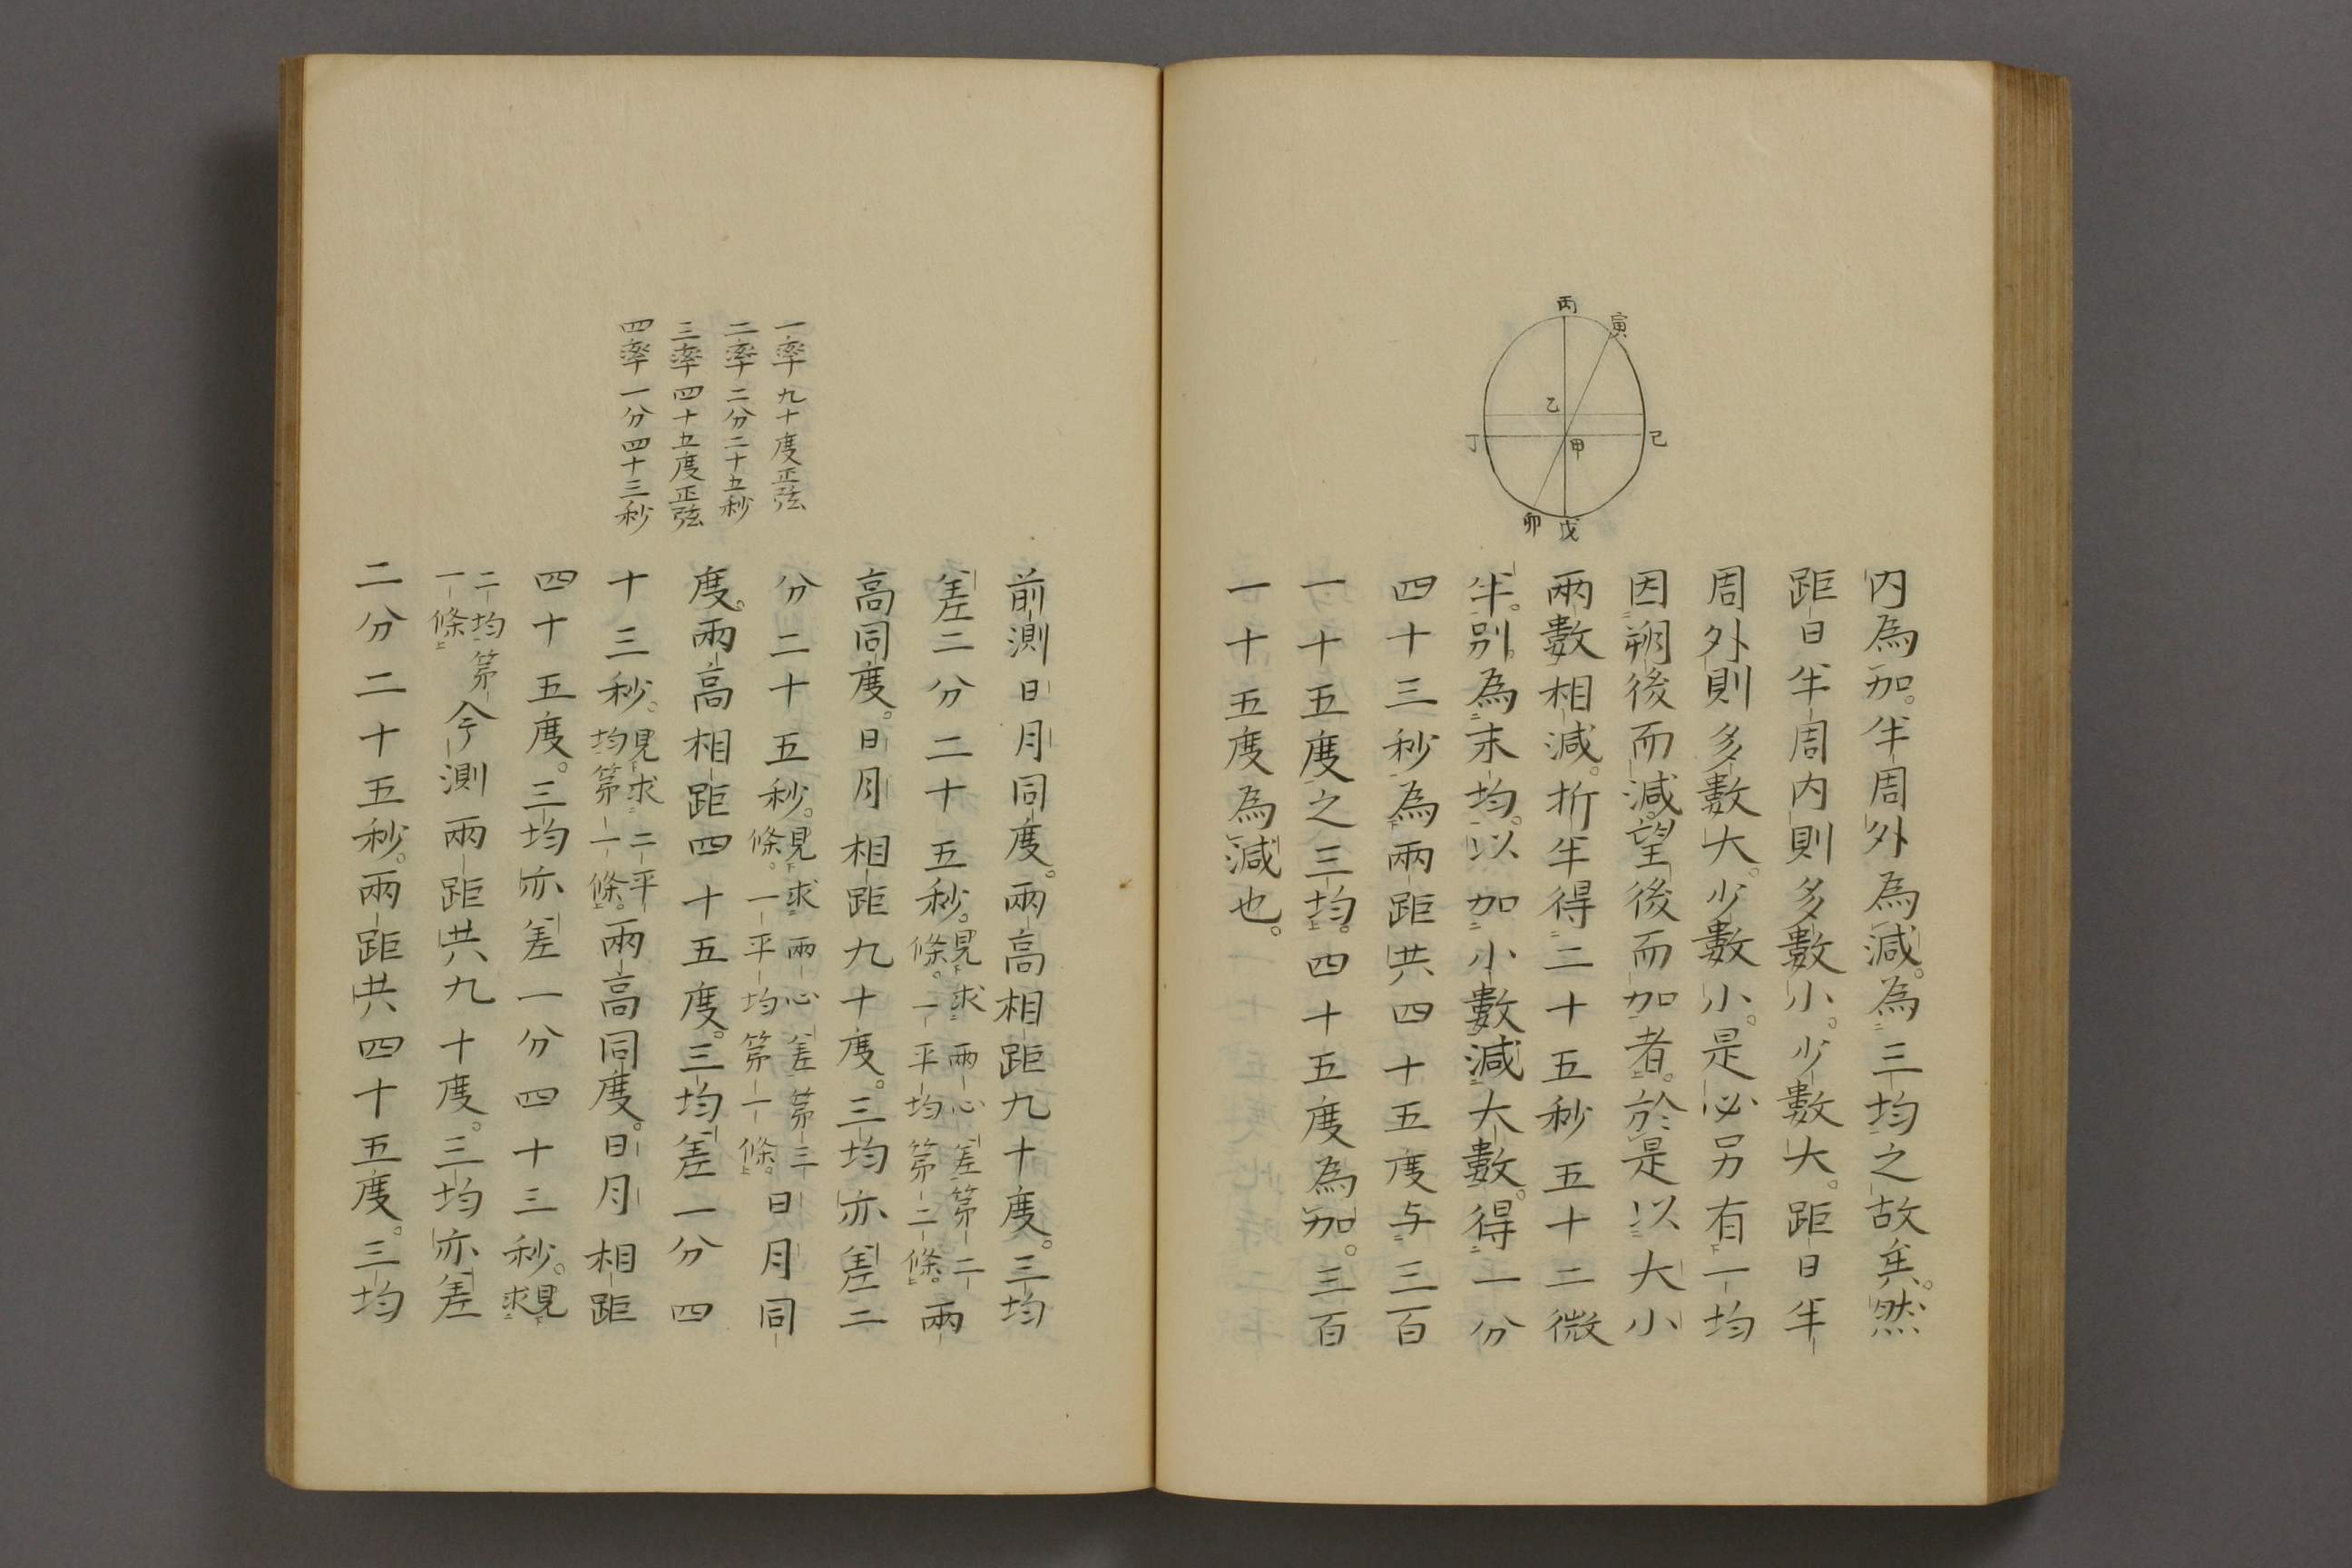 丙
寅
乙
丁
甲
己
卯
戊
内為加。半周外為減。為三均之故矣。然
距日半周内則多數小。少數大。距日半
周外則多數大。少數小。是必另有一均
因朔後而減。望後而加者。於是以大小
兩數相減。折半得二十五秒五十二微
半。別為末均。以加小數減大數。得一分
四十三秒為兩距共四十五度与三百
一十五度之三均。四十五度為加。三百
一十五度為減也。
前測日月同度。兩高相距九十度。三均
差二分二十五秒。見求兩心差第二
條。一平均第二條。兩
高同度。日月相距九十度。三均亦差二
分二十五秒。見求兩心差第三
條。一平均第一條。日月同
度。兩高相距四十五度。三均差一分四
十三秒。見求二平
均第一條。兩高同度。日月相距
四十五度。三均亦差一分四十三秒。見
求
二均第
一條今測兩距共九十度。三均亦差
二分二十五秒。兩距共四十五度。三均
一率九十度正弦
二率二分二十五秒
三率四十五度正弦
四率一分四十三秒